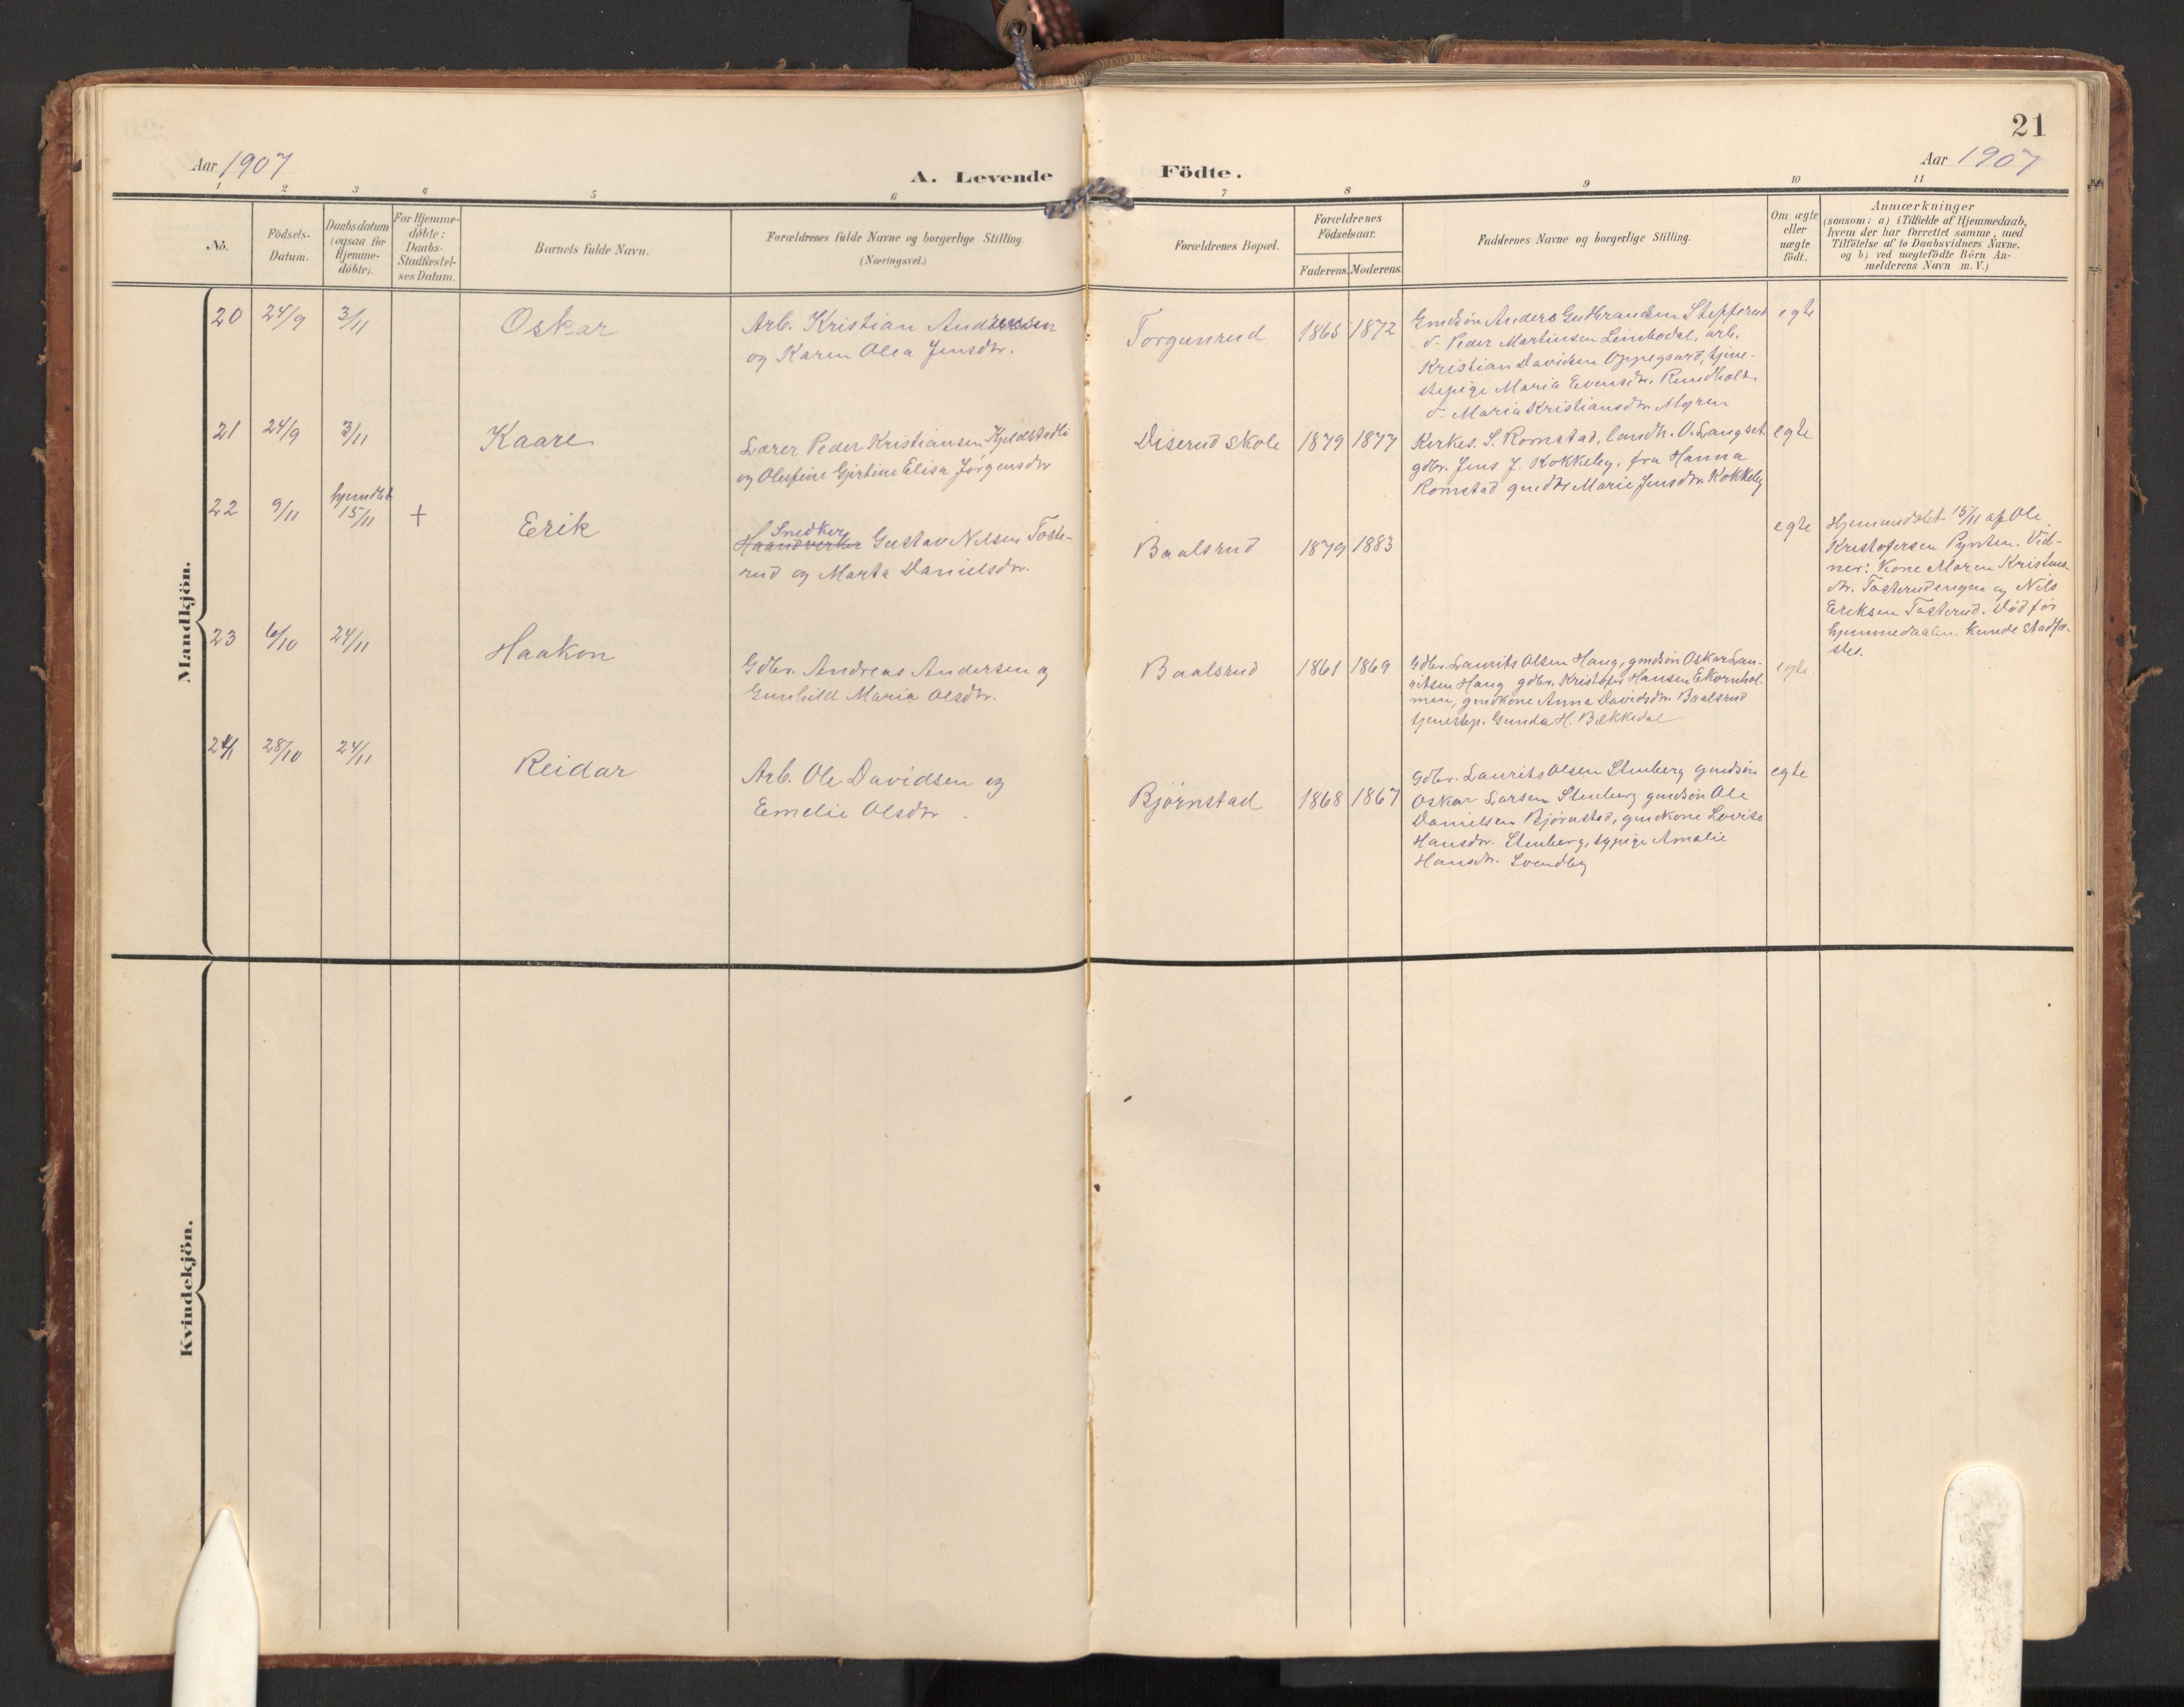 21
Aar 1907
A. Levende Födte.
Aar 1907
1 2 3 4 5 6 7 8 9 10 11
Nô.
Födsels-
Datum.
Daabsdatum
(ogsaa for
Hjemme-
döbte).
For Hjemme-
döbte:
Daabs-
Stadfæstel-
ses Datum.
Barnets fulde Navn.
Forældrenes fulde Navne og borgerlige Stilling.
(Næringsvei.)
Forældrenes Bopæl.
Forældrenes
Födselsaar.
Faderens. Moderens.
Faddernes Navne og borgerlige Stilling.
Om ægte
eller
uægte
födt.
Anmærkninger
(saasom: a) i Tilfælde af Hjemmedaab,
hvem der har forrettet samme, med
Tilföielse af to Daabsvidners Navne.
og b) ved uægtefödte Börn An-
melderens Navn m. V.)
Mandkjön.
20 24/9 3/11
Oskar
Arb. Kristian Andreassen
og Karen Olea Jensdtr.
Torgunrud
1865 1872
Gmdsön Anders Gudbrandsen Stepperud
d- Peder Martinsen Limbodal, arb.
Kristian Davidsen Oppegaard, tjene-
stepige Maria Evensdtr. Rundholt.
d- Maria Kristiansdtr Myren
egte
21 24/9 3/11
Kaare
Lærer Peder Kristiansen Kjeldstadli
og Olufine Gjertine Elisa Jørgensdtr
Diserud skole
1879 1877
Kirkes. S. Romstad, landh. O. Langset
gdbr. Jens J. Kokkeby, fru Hanna
Romstad gmdtr Marie Jensdtr Kokkeby
egte
22 9/11 hjemdbt 15/11 +
Erik
Snedker
Haandverker Gustav Nilsen Toste-
rud og Marta Danielsdtr.
Baalsrud
1879 1883
egte
Hjemmedøbt 15/11 af Ole
Kristofersen Pynten. Vid-
ner: Kone Maren Kristians-
dtr. Tosterudengen og Nils
Eriksen Tosterud. Død før
hjemmedaaben kunde stadfæ-
stes.
23 6/10 24/11
Haakon
Gdbr. Andreas Andersen og
Gunhild Maria Olsdtr.
Baalsrud
1861 1869
Gdbr. Laurits Olsen Haug, gmdsön Oskar Lau-
ritsen Haug gdbr. Kristofer Hansen Ekornhol-
men, gmdkone Anna Davidsdtr Baalsrud
tjenestep. Gunda H. Bækkedal
egte
24 28/10 24/11
Reidar
Arb. Ole Davidsen og
Emelie Olsdtr.
Bjørnstad
1868 1867
Gdbr. Laurits Olsen Stenberg gmdsön
Oskar Larsen Stenberg gmdsön Ole
Danielsen Bjørnstad, gmdkone Lovise
Hansdtr. Stenberg, sypige Amalie
Hansdtr. Svendby
egte
Kvindekjön.